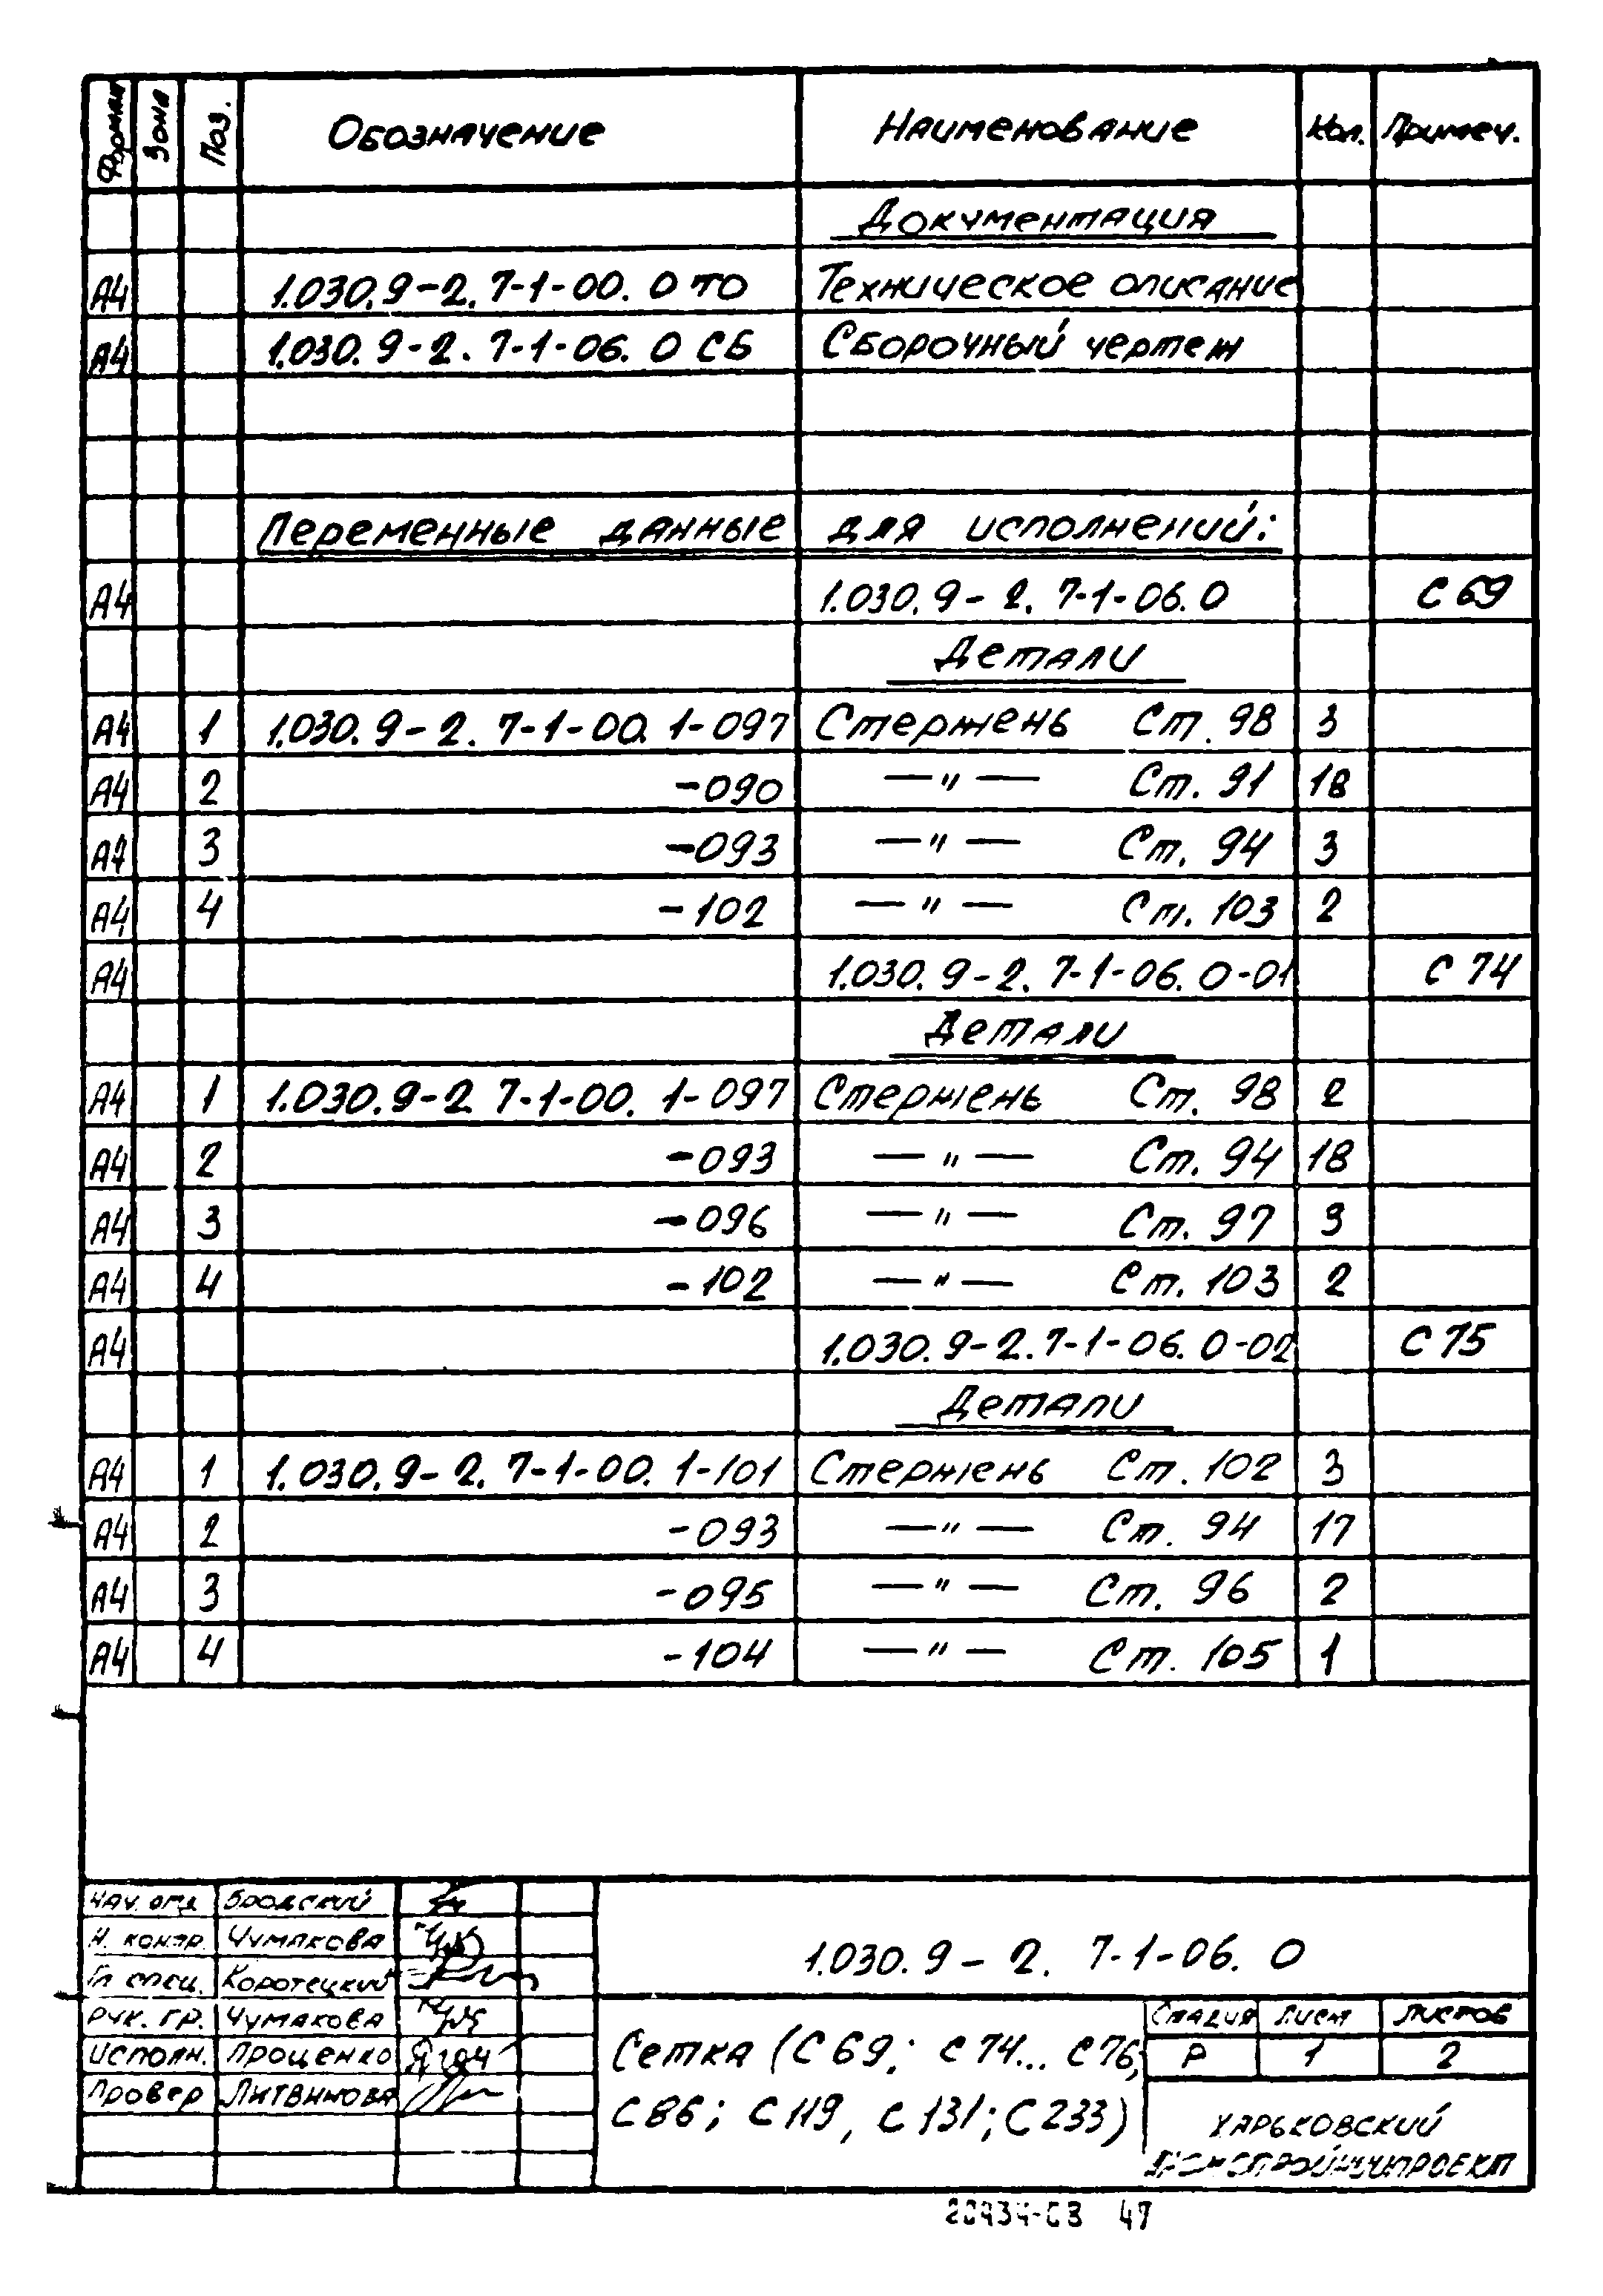 Формат Зона Поз. Обозначение Наименование Кол. Примеч.
Документация
А4 1.030.9-2.7-1-00.0 ТО Техническое описание
А4 1.030.9-2.7-1-06.0 СБ Сборочный чертеж
Переменные данные для исполнений:
А4 1.030.9-2.7-1-06.0 С 69
Детали
А4 1 1.030.9-2.7-1-00.1-097 Стержень Ст.98 3
А4 2 -090 —"— Ст.91 18
А4 3 -093 —"— Ст.94 3
А4 4 -102 —"— Ст.103 2
А4 1.030.9-2.7-1-06.0-01 С 74
Детали
А4 1 1.030.9-2.7-1-00.1-097 Стержень Ст.98 2
А4 2 -093 —"— Ст.94 18
А4 3 -096 —"— Ст.97 3
А4 4 -102 —"— Ст.103 2
А4 1.030.9-2.7-1-06.0-02 С 75
Детали
А4 1 1.030.9-2.7-1-00.1-101 Стержень Ст.102 3
А4 2 -093 —"— Ст.94 17
А4 3 -095 —"— Ст.96 2
А4 4 -104 —"— Ст.105 1
Нач. отд. Бродский
Н. контр. Чумакова
Гл спец. Коротецкий
Рук. гр. Чумакова
Исполн. Проценко
Провер Литвинова
1.030.9-2.7-1-06.0
Сетка (С 69; С 74... С 76;
С 86; С 119, С 131; С 233)
Стадия Лист Листов
Р 1 2
Харьковский
20934-03 47